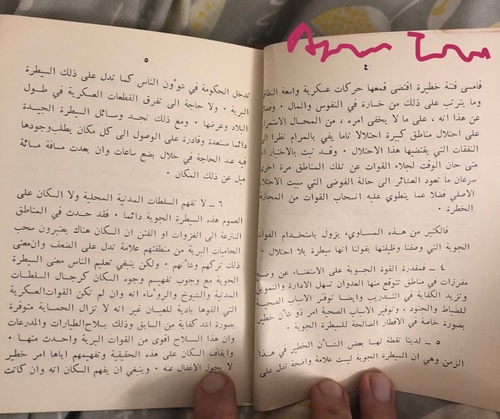 ٤
فأمسى فتنة خطيرة اقتضى قمعها حركات عسكرية واسعة النطاق
وما يترتب على ذلك من خسارة في النفوس والمال . وفضلا
عن هذا انه ، على ما لا يخفى امره ، من المحال الاستمرار
على احتلال مناطق كبيرة احتلالا تاما يفي بالمرام نظرا الى
النفقات التي يقتضيها هذا الاحتلال . وقد ثبت بالاختبار انه
متى حان الوقت لخلاء القوات عن تلك المناطق مرة اخرى
سرعان ما تعود العشائر الى حالة الفوضى التي سببت الاحتلال
الاصلي فضلا عما ينطوي عليه انسحاب القوات من المجازفة
الخطرة .
فالكثير من هذه المساوىء يزول باستخدام القوات
الجوية التي وصفنا وظيفتها بقولنا انها سيطرة بلا احتلال .
٤ – فمقدرة القوة الجوية على الاستغناء عن وضع
مفرزات في مناطق تتوقع منها العدوان تسهل الادارة والتموين
وتزيد الكفاية في التدريب وايضا توفر الاسباب الصحية
للضباط والجنود ، وتوفير الاسباب الصحية امر ذو شأن خطير
بصورة خاصة في الاقطار الصالحة للسيطرة الجوية .
٥ – لدينا نقطة لها بعض الشأن الخطير في هذا
الزمن وهي ان السيطرة الجوية ليست علامة واضحة تدل على
٥
تدخل الحكومة في شؤون الناس كما تدل على ذلك السيطرة
البرية . ولا حاجة الى تفرق القطعات العسكرية في طول
البلاد وعرضها . ومع ذلك تجد وسائل السيطرة الجيدة
دائما مستعدة وقادرة على الوصول الى كل مكان يطلب وجودها
فيه عند الحاجة في خلال بضع ساعات وان بعدت مسافة مائة
ميل عن ذلك المكان .
٦ – لا تفهم السلطات المدنية المحلية ولا السكان على
العموم هذه السيطرة الجوية دائما . فقد حدث في المناطق
النزاعة الى الغزوات او الفتن ان السكان هناك يعتبرون سحب
الحاميات البرية من منطقتهم علامة تدل على الضعف وان معنى
ذلك تركهم وشأنهم . ولكن ينبغي تعليم الناس معنى السيطرة
الجوية مع وجوب تفهيم وجوه السكان كرجال السلطات
المدنية والشيوخ والرؤساء انه وان لم تكن القوات العسكرية
التي الفوها بادية للعيان غير انه لا تزال الحماية متوفرة
بصورة اشد كفاية من السابق وذلك بسلاح الطيارات والمدرعات
وان هذا السلاح اقوى من القوات البرية واحدث منها .
وايقاف السكان على هذه الحقيقية وتفهيمهم اياها امر خطير
لا يجوز الاغفال عنه . وينبغي ان يفهم السكان انه وان كانت